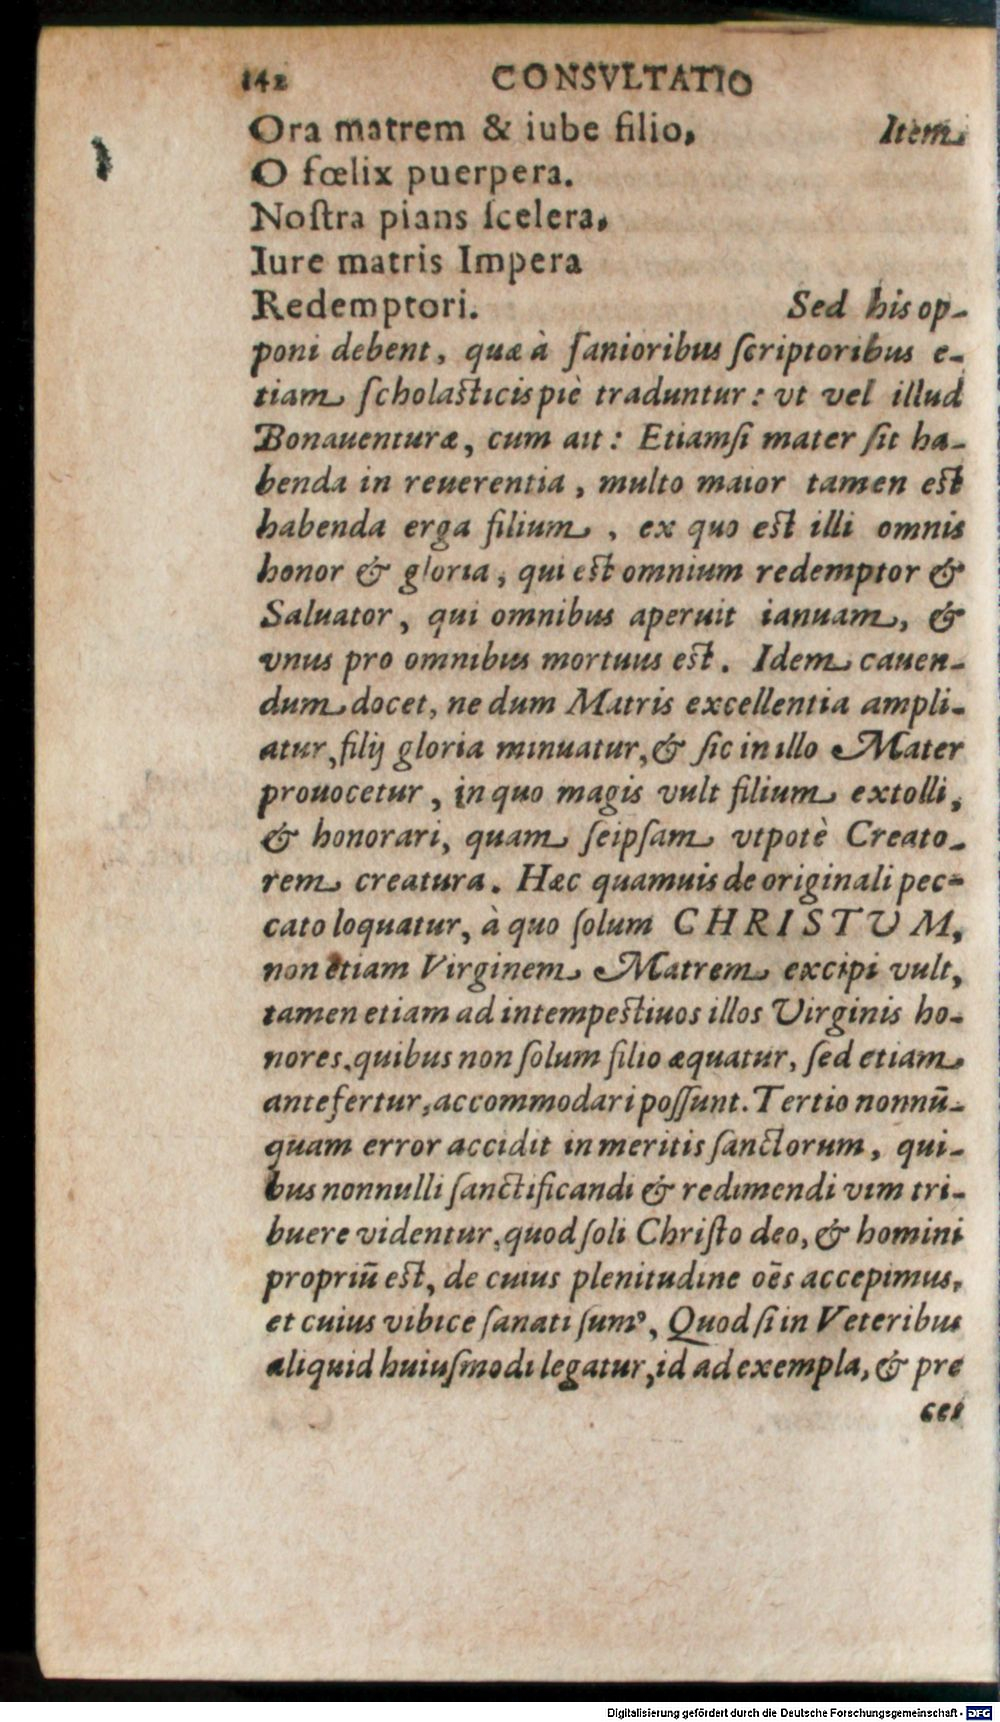 142 CONSVLTATIO
Ora matrem & iube filio, Item
O fœlix puerpera.
Noſtra pians ſcelera,
Iure matris Impera
Redemptori. Sed his op-
poni debent, quæ à ſanioribus ſcriptoribus e-
tiam ſcholaſticis piè traduntur: vt vel illud
Bonauenturæ, cum ait: Etiamſi mater ſit ha-
benda in reuerentia, multo maior tamen eſt
habenda erga filium, ex quo eſt illi omnis
honor & gloria, qui eſt omnium redemptor &
Saluator, qui omnibus aperuit ianuam, &
vnus pro omnibus mortuus eſt. Idem cauen-
dum docet, ne dum Matris excellentia ampli-
atur, filij gloria minuatur, & ſic in illo Mater
prouocetur, in quo magis vult filium extolli,
& honorari, quam ſeipſam vtpotè Creato-
rem creatura. Hæc quamuis de originali pec-
cato loquatur, à quo ſolum CHRISTUM,
non etiam Virginem Matrem excipi vult,
tamen etiam ad intempeſtiuos illos Virginis ho-
nores, quibus non ſolum filio æquatur, ſed etiam
antefertur, accommodari poſſunt. Tertio nonnū-
quam error accidit in meritis ſanctorum, qui-
bus nonnulli ſanctificandi & redimendi vim tri-
buere videntur, quod ſoli Chriſto deo, & homini
propriū eſt, de cuius plenitudine oēs accepimus,
et cuius vibice ſanati ſumꝰ, Quod ſi in Veteribus
aliquid huiuſmodi legatur, id ad exempla, & pre
ces
Digitalisierung gefördert durch die Deutsche Forschungsgemeinschaft - DFG